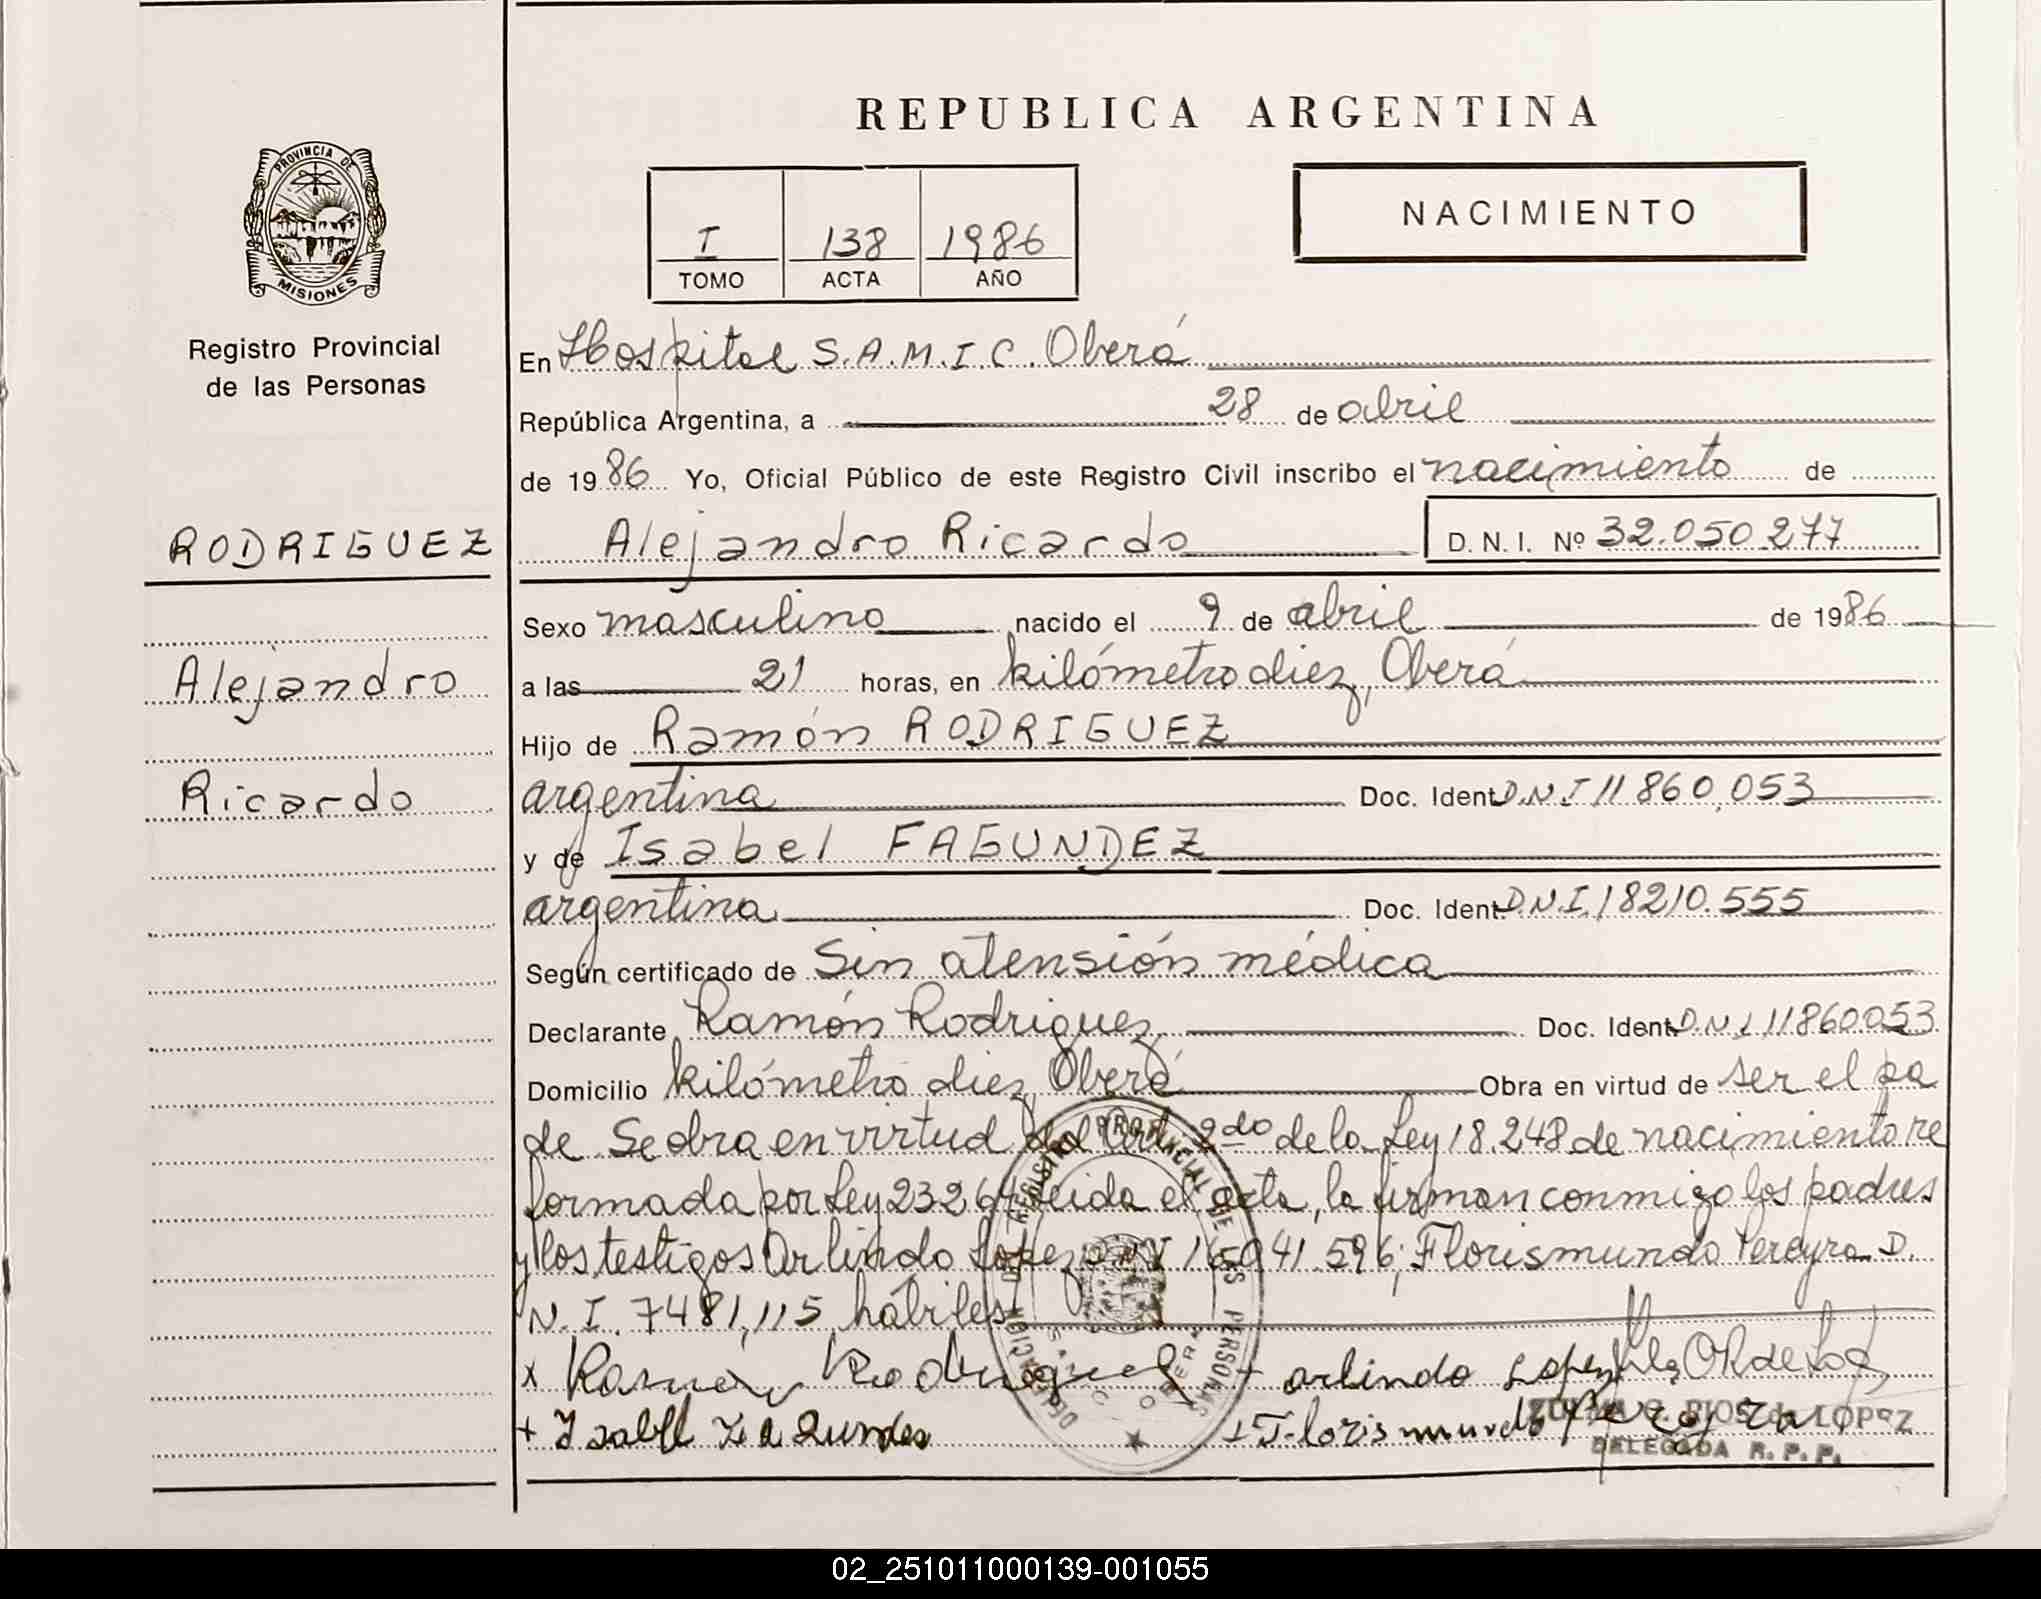 REPUBLICA ARGENTINA
PROVINCIA DE
MISIONES
Registro Provincial
de las Personas
RODRIGUEZ
Alejandro
Ricardo
I 138 1986
TOMO ACTA AÑO
NACIMIENTO
En Hospital S.A.M.I.C. Oberá
República Argentina, a 28 de abril
de 1986 Yo, Oficial Público de este Registro Civil inscribo el nacimiento de
Alejandro Ricardo D. N. I. Nº 32.050.277
Sexo masculino nacido el 9 de abril de 1986
a las 21 horas, en kilómetro diez, Oberá
Hijo de Ramón RODRIGUEZ
argentina Doc. Ident. D.N.I 11 860.053
y de Isabel FAGUNDEZ
argentina Doc. Ident. D.N.I. 18210.555
Según certificado de Sin atensión médica
Declarante Ramón Rodriguez Doc. Ident. D.N.I 11860053
Domicilio kilómetro diez, Oberá Obra en virtud de ser el pa
de Se obra en virtud del Art. 2do de la Ley 18.248 de nacimiento re
formada por Ley 23264 Leida el acta, la firman conmigo los padres
y los testigos Arlindo Lopez DNI 16041.596; Florismundo Pereyra D.
N. I. 7481,115 hábiles
x Ramón Rodriguez + arlindo Lopez
+ Isabel + Florismundo Pereyra
RIOS de LOPEZ
DELEGADA R. P. P.
REGISTRO PROVINCIAL DE LAS PERSONAS
02_251011000139-001055